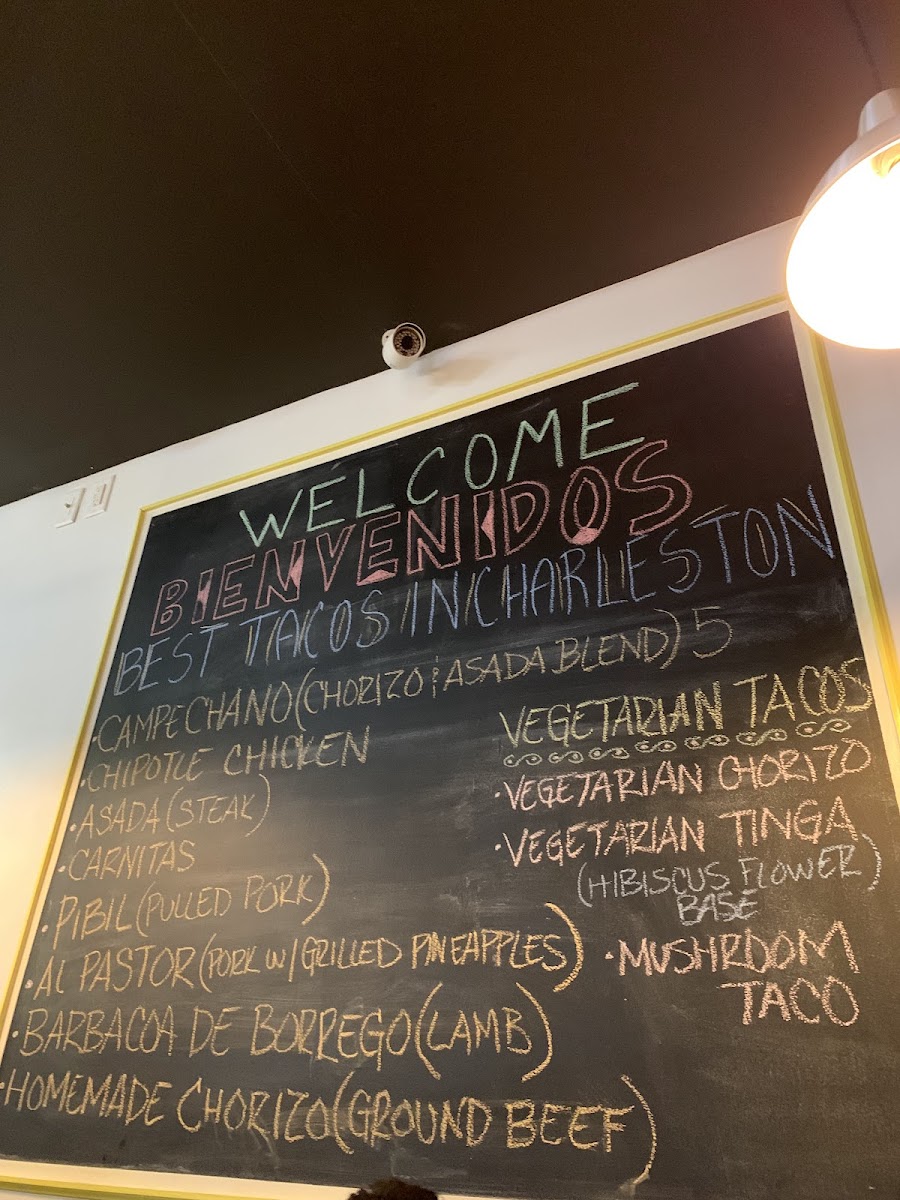 WELCOME
BIENVENIDOS
BEST TACOS IN CHARLESTON
·CAMPECHANO(CHORIZO & ASADA BLEND) 5
·CHIPOTLE CHICKEN
·ASADA (STEAK)
·CARNITAS
·PIBIL (PULLED PORK)
·AL PASTOR (PORK W/ GRILLED PINEAPPLES)
·BARBACOA DE BORREGO (LAMB)
·HOMEMADE CHORIZO (GROUND BEEF)
VEGETARIAN TACOS
·VEGETARIAN CHORIZO
·VEGETARIAN TINGA
(HIBISCUS FLOWER)
BASE
·MUSHROOM
TACO